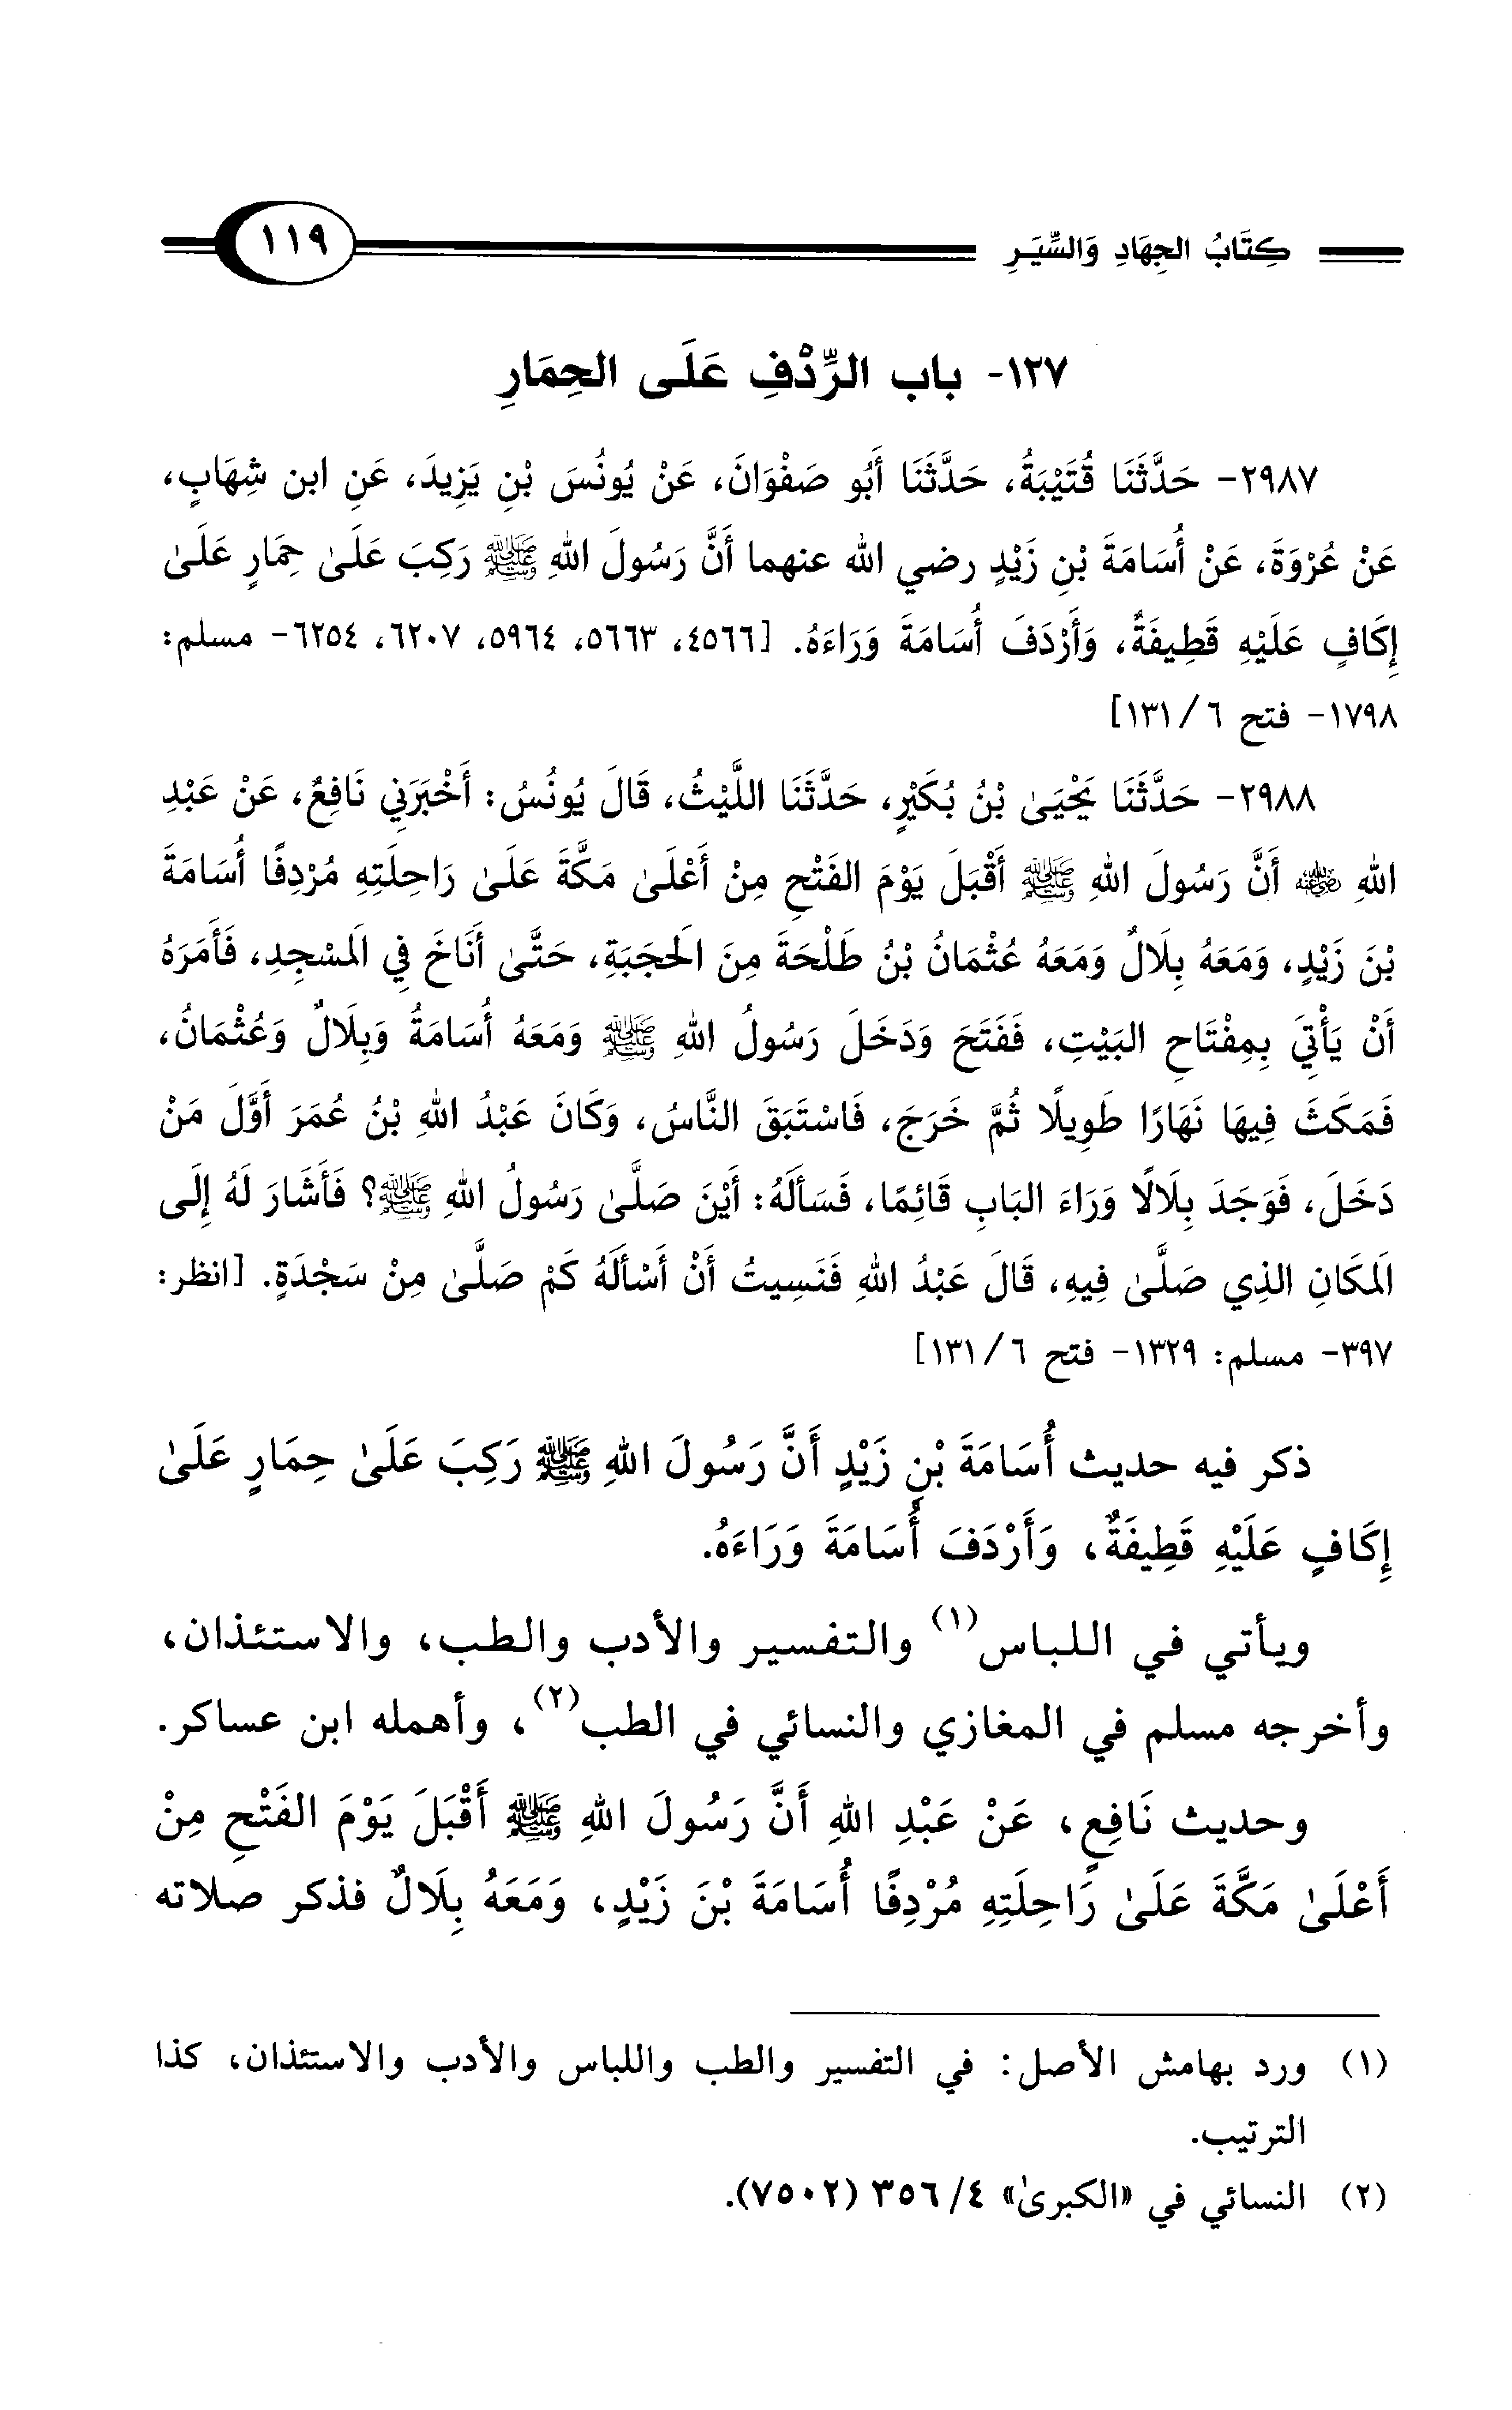 كِتَابُ الجِهَادِ وَالسِّيَرِ
١١٩
١٢٧- باب الرِّدْفِ عَلَى الحِمَارِ
٢٩٨٧- حَدَّثَنَا قُتَيْبَةُ، حَدَّثَنَا أَبُو صَفْوَانَ، عَنْ يُونُسَ بْنِ يَزِيدَ، عَنِ ابن شِهَابٍ،
عَنْ عُرْوَةَ، عَنْ أُسَامَةَ بْنِ زَيْدٍ رضي الله عنهما أَنَّ رَسُولَ اللهِ ﷺ رَكِبَ عَلَىٰ حِمَارٍ عَلَىٰ
إِكَافٍ عَلَيْهِ قَطِيفَةٌ، وَأَرْدَفَ أُسَامَةَ وَرَاءَهُ. [٤٥٦٦، ٥٦٦٣، ٥٩٦٤، ٦٢٠٧، ٦٢٥٤- مسلم:
١٧٩٨- فتح ٦/ ١٣١]
٢٩٨٨- حَدَّثَنَا يَحْيَىٰ بْنُ بُكَيْرٍ، حَدَّثَنَا اللَّيْثُ، قَالَ يُونُسُ: أَخْبَرَنِي نَافِعٌ، عَنْ عَبْدِ
اللهِ رضي الله عنه أَنَّ رَسُولَ اللهِ ﷺ أَقْبَلَ يَوْمَ الفَتْحِ مِنْ أَعْلَىٰ مَكَّةَ عَلَىٰ رَاحِلَتِهِ مُرْدِفًا أُسَامَةَ
بْنَ زَيْدٍ، وَمَعَهُ بِلَالٌ وَمَعَهُ عُثْمَانُ بْنُ طَلْحَةَ مِنَ الَحجَبَةِ، حَتَّىٰ أَنَاخَ فِي الَمسْجِدِ، فَأَمَرَهُ
أَنْ يَأْتِيَ بِمِفْتَاحِ البَيْتِ، فَفَتَحَ وَدَخَلَ رَسُولُ اللهِ ﷺ وَمَعَهُ أُسَامَةُ وَبِلَالٌ وَعُثْمَانُ،
فَمَكَثَ فِيهَا نَهَارًا طَوِيلًا ثُمَّ خَرَجَ، فَاسْتَبَقَ النَّاسُ، وَكَانَ عَبْدُ اللهِ بْنُ عُمَرَ أَوَّلَ مَنْ
دَخَلَ، فَوَجَدَ بِلَالًا وَرَاءَ البَابِ قَائِمًا، فَسَأَلَهُ: أَيْنَ صَلَّىٰ رَسُولُ اللهِ ﷺ؟ فَأَشَارَ لَهُ إِلَى
الَمكَانِ الذِي صَلَّىٰ فِيهِ، قَالَ عَبْدُ اللهِ فَنَسِيتُ أَنْ أَسْأَلَهُ كَمْ صَلَّىٰ مِنْ سَجْدَةٍ. [انظر:
٣٩٧- مسلم: ١٣٢٩- فتح ٦/ ١٣١]
ذكر فيه حديث أُسَامَةَ بْنِ زَيْدٍ أَنَّ رَسُولَ اللهِ ﷺ رَكِبَ عَلَىٰ حِمَارٍ عَلَىٰ
إِكَافٍ عَلَيْهِ قَطِيفَةٌ، وَأَرْدَفَ أُسَامَةَ وَرَاءَهُ.
ويأتي في اللباس(١) والتفسير والأدب والطب، والاستئذان،
وأخرجه مسلم في المغازي والنسائي في الطب(٢)، وأهمله ابن عساكر.
وحديث نَافِعٍ، عَنْ عَبْدِ اللهِ أَنَّ رَسُولَ اللهِ ﷺ أَقْبَلَ يَوْمَ الفَتْحِ مِنْ
أَعْلَىٰ مَكَّةَ عَلَىٰ رَاحِلَتِهِ مُرْدِفًا أُسَامَةَ بْنَ زَيْدٍ، وَمَعَهُ بِلَالٌ فذكر صلاته
(١) ورد بهامش الأصل: في التفسير والطب واللباس والأدب والاستئذان، كذا
الترتيب.
(٢) النسائي في «الكبرىٰ» ٤/ ٣٥٦ (٧٥٠٢).